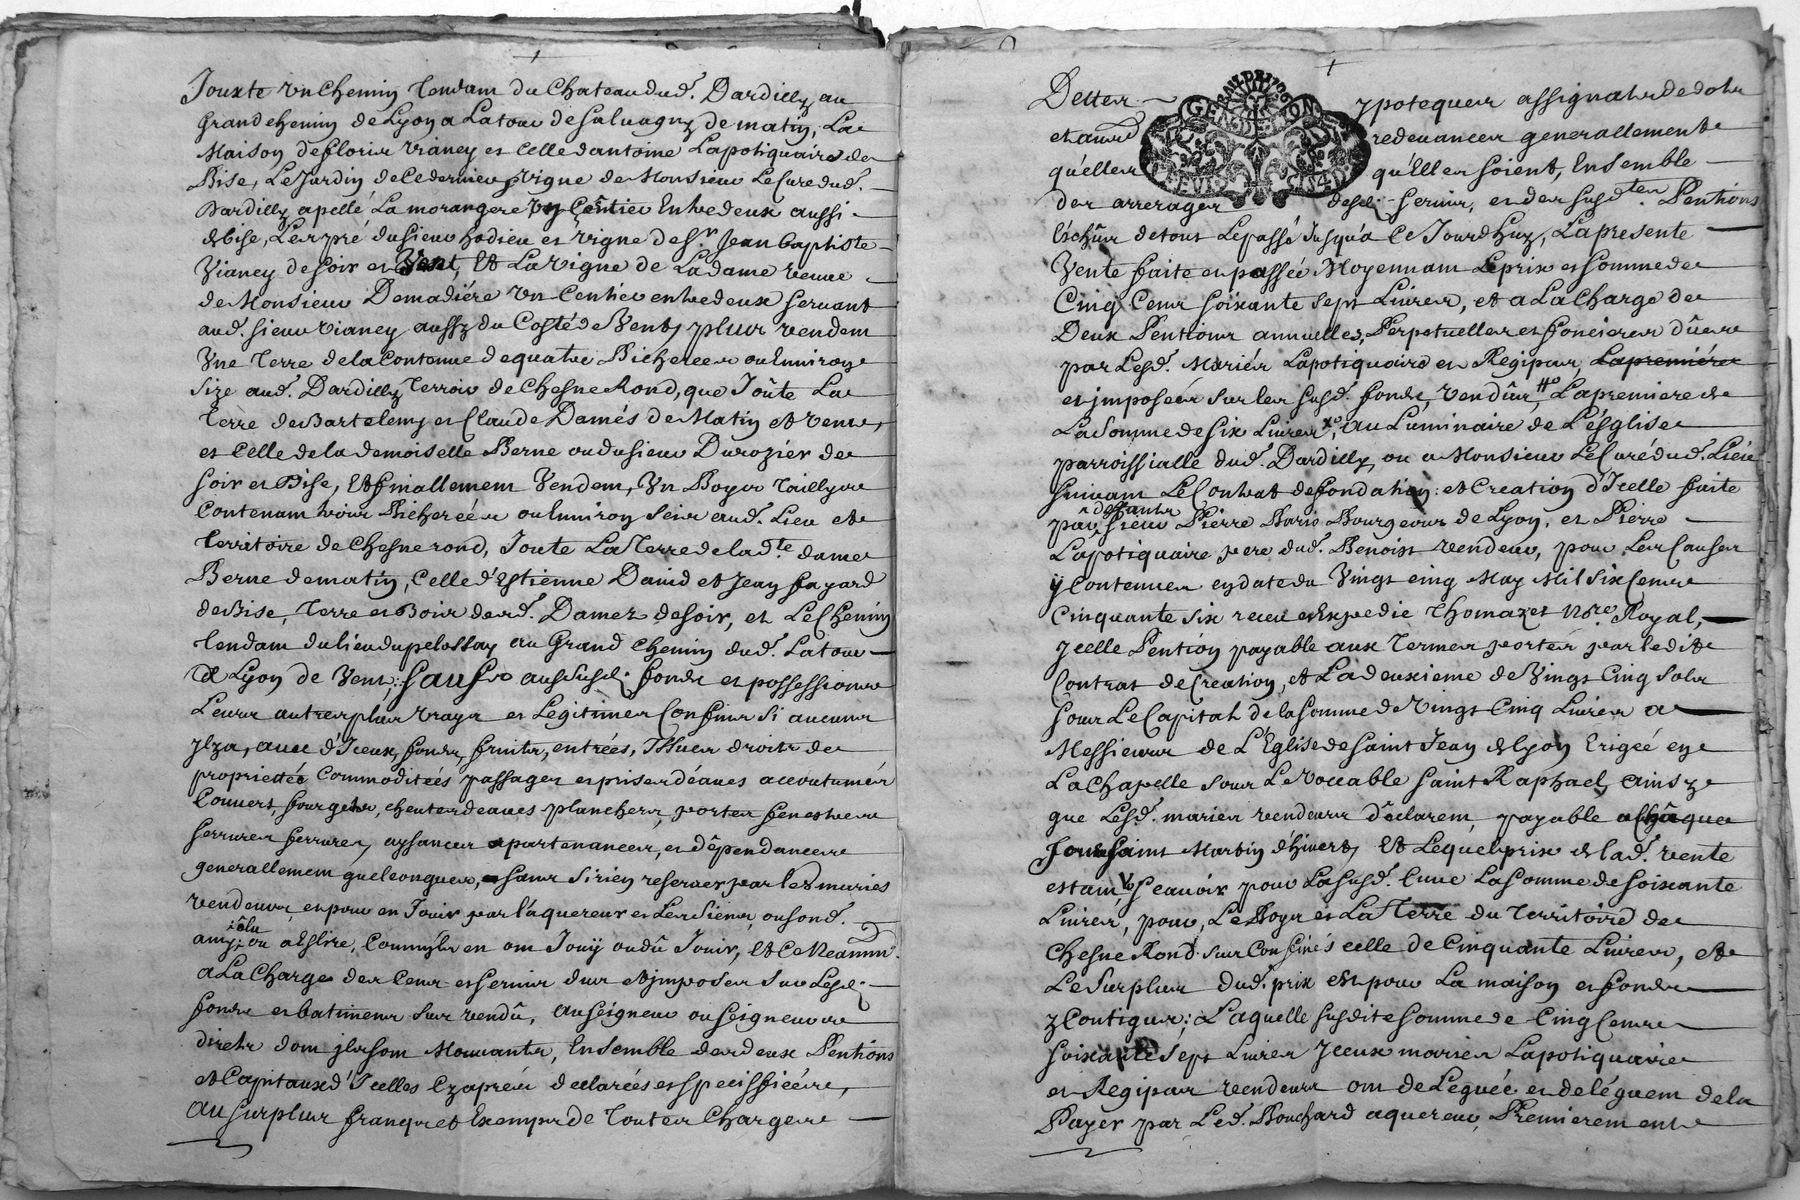 Jouxte un Chemin tendant du Chateau dud. Dardilly au
Grand chemin de Lyon a La tour de Saluagny de matin, La
Maison de florie Vianey et celle dantoine Lapotiquaire de
Bise, Le Jardin de ce dernier, vigne de Monsieur Le Curé dud.
Dardilly apellé La morangere un Centier Entre deux aussi
de bise, Les pré du sieur hodieu et vigne de Sr. Jean baptiste
Vianey de soir et Vent, Et La vigne de La dame veuve
de Monsieur Demadiére un Centier entre deux servant
aud. sieur vianey aussy du Costé de Vent, plus vendent
Une Terre de la Contenue de quatre Bicherees ou Environ
size aud. Dardilly Terroir de Chesne Rond, que Joûte La
Terre de Bartelemy et Claude Damés de Matin et vent,
et Celle de la demoiselle Berne ou du sieur Durozier de
soir et Bise, Et finallement Vendent, Un Boyr Taillyr
Contenant trois Bicherées ou Environ Scis aud. Lieu et
territoire de Chesne rond, Joute La Terre de lad.te dame
Berne de matin, Celle d'Estienne David et Jean fayard
de Bise, Terre et Bois desd. Damez de soir, et Le Chemin
tendant du lieu du pelossay au Grand Chemin dud. Latour
de Lyon de Vent; sauf aux susd. fonds et possessions
Leurs autres plus vrays et Legitimes Confins si aucuns
ylza, avec d'Iceux, fonds, fruits, entrées, Issues droits de
proprietée Commoditeés passages et prises déaues accoutumés
Couvers, fourgets, cheutes deaues planchers, portes fenestres
serrures ferrures, aysances apartenances, et dêpendances
generallement quelconques, sans si rien reserver par lesd maries
vendeurs, et pour en Jouir par l'aquereur et Les Siens, ou son d.
amy élu
ou a Eslire, Comm'ils en ont Jouÿ ou dû Jouir, Et Ce Neanm.
a La Charge des Cens et servis dus et imposés sur Lesd.
fonds et batimens sus vendû, au seigneur ou seigneurs
directs dont jls sont Mouvants, Ensemble des deux Pentions
et Capitaux d'Icelles Cy aprés declarées et specissiées,
au surplus franq et Exempt de Toutes Charges
Dettes ypoteques assignats de dots
et autres redevances generallement
qu'elles qu'elles soient, Ensemble
des arrerages desd. servis, et des susd.tes Pentions
Echûs de tout Le passé Jusqu'a Ce Jourdhuy, La presente
Vente faite et passée Moyennant Le prix et somme de
Cinq Cens soixante sept Livres, et a La Charge de
Deux Pentions annuelles, Perpetuelles et foncieres dûes
par Lesd. Mariés Lapotiquaire et Regipas, La premiére
et jmposées sur les susd. fonds Vendûs, La premiere de
La Somme de six Livres, au Luminaire de L'église
parroissialle dud. Dardilly ou a Monsieur Le Curé dud. Lieu
suivant Le Contrat de fondation et Creation d'Icelle faite
deffunts
par sieur Pierre Baris Bourgeois de Lyon, et Pierre
Lapotiquaire pere dud. Benoist vendeur, pour Les Causes
y Contenues en date du Vingt cinq May Mil six Cens
Cinquante six receu et Expedié Thomazet Nore. Royal,
Jcelle Pention payable aux Termes portés par ledit
Contrat de Creation, et La deuxieme de Vingt Cinq Sols
sous Le Capital de la somme de Vingt Cinq Livres a
Messieurs de L'Eglise de Saint Jean de Lyon Erigée en
La Chapelle sous Le Vocable saint Raphael, ainsy
que Lesd. mariés vendeurs dêclarent, payable a Châque
Jour Saint Martin d'hivert, Et Lequel prix de lad. vente
estant scavoir pour La susd. Cuve La somme de soixante
Livres, pour Le Boyr et La Terre du Territoire de
Chesne Rond sus Confinés celle de Cinquante Livres, et
Le surplus dud. prix est pour La maison et fonds
y Contigus; Laquelle susdite somme de Cinq Cens
soixante sept Livres Jceux mariés Lapotiquaire
et Regipas vendeurs ont deLeguée et deléguent de la
Payer par Led. Bouchard aquereur, Premierement
GEN. DE LYON